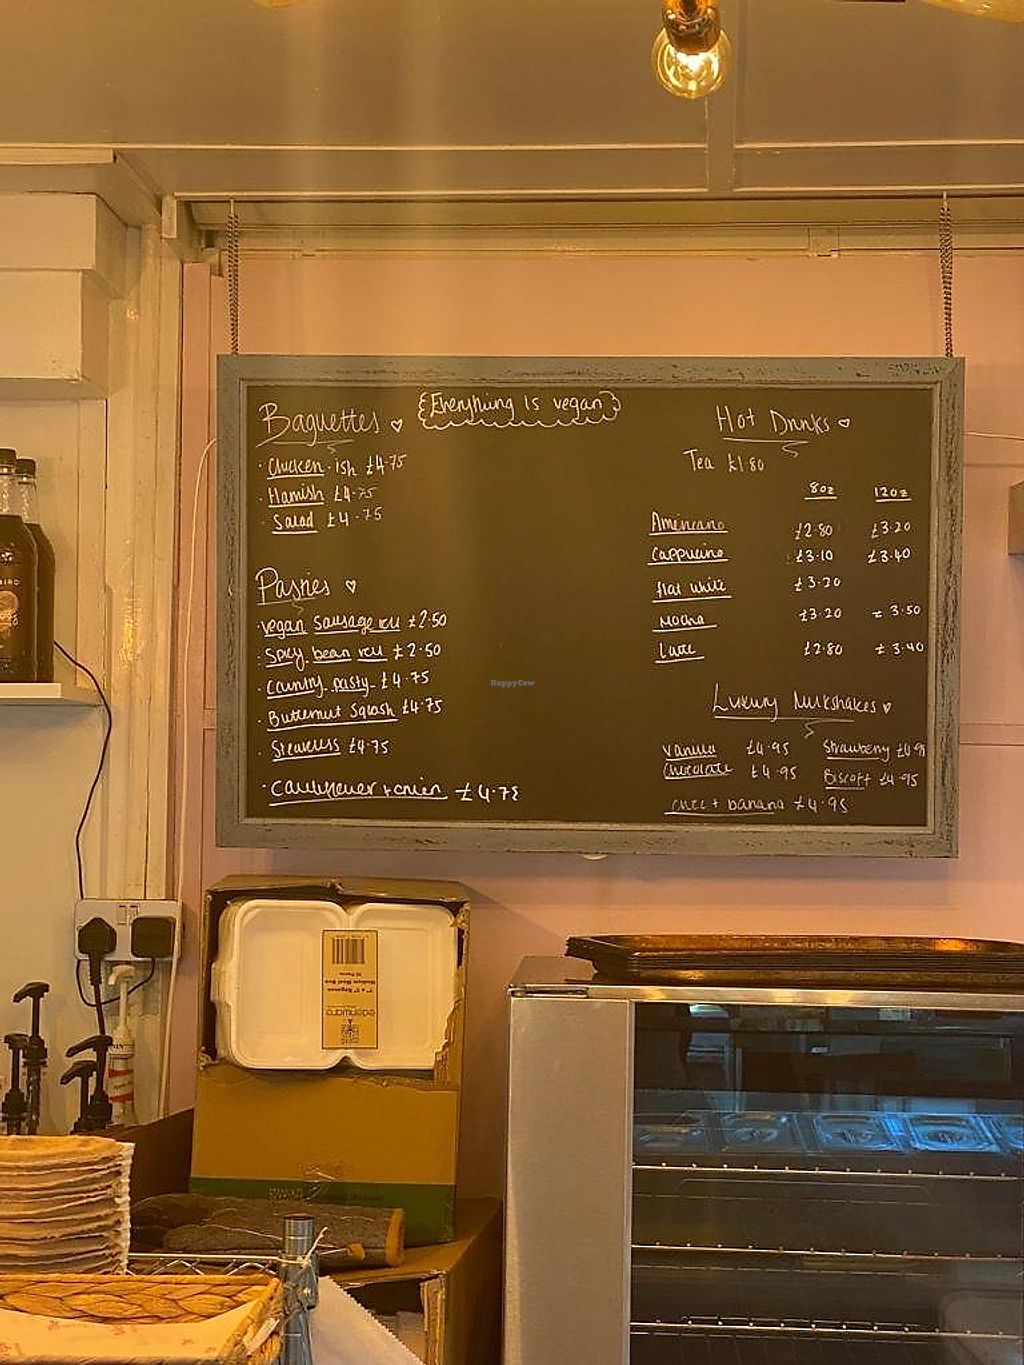 Baguettes
Everything is vegan
· Chicken-ish £4.75
· Hamish £4.75
· Salad £4.75
Pasties
· vegan sausage roll £2.50
· Spicy bean roll £2.50
· Country pasty £4.75
· Butternut Squash £4.75
· Steakless £4.75
· Cauliflower + onion £4.75
Hot Drinks
Tea £1.80
8oz 12oz
Americano £2.80 £3.20
Cappucino £3.10 £3.40
flat white £3.20
Mocha £3.20 £3.50
Latte £2.80 £3.40
Luxury Milkshakes
Vanilla £4.95 Strawberry £4.95
Chocolate £4.95 Biscoff £4.95
choc + banana £4.95
HappyCow
edenware